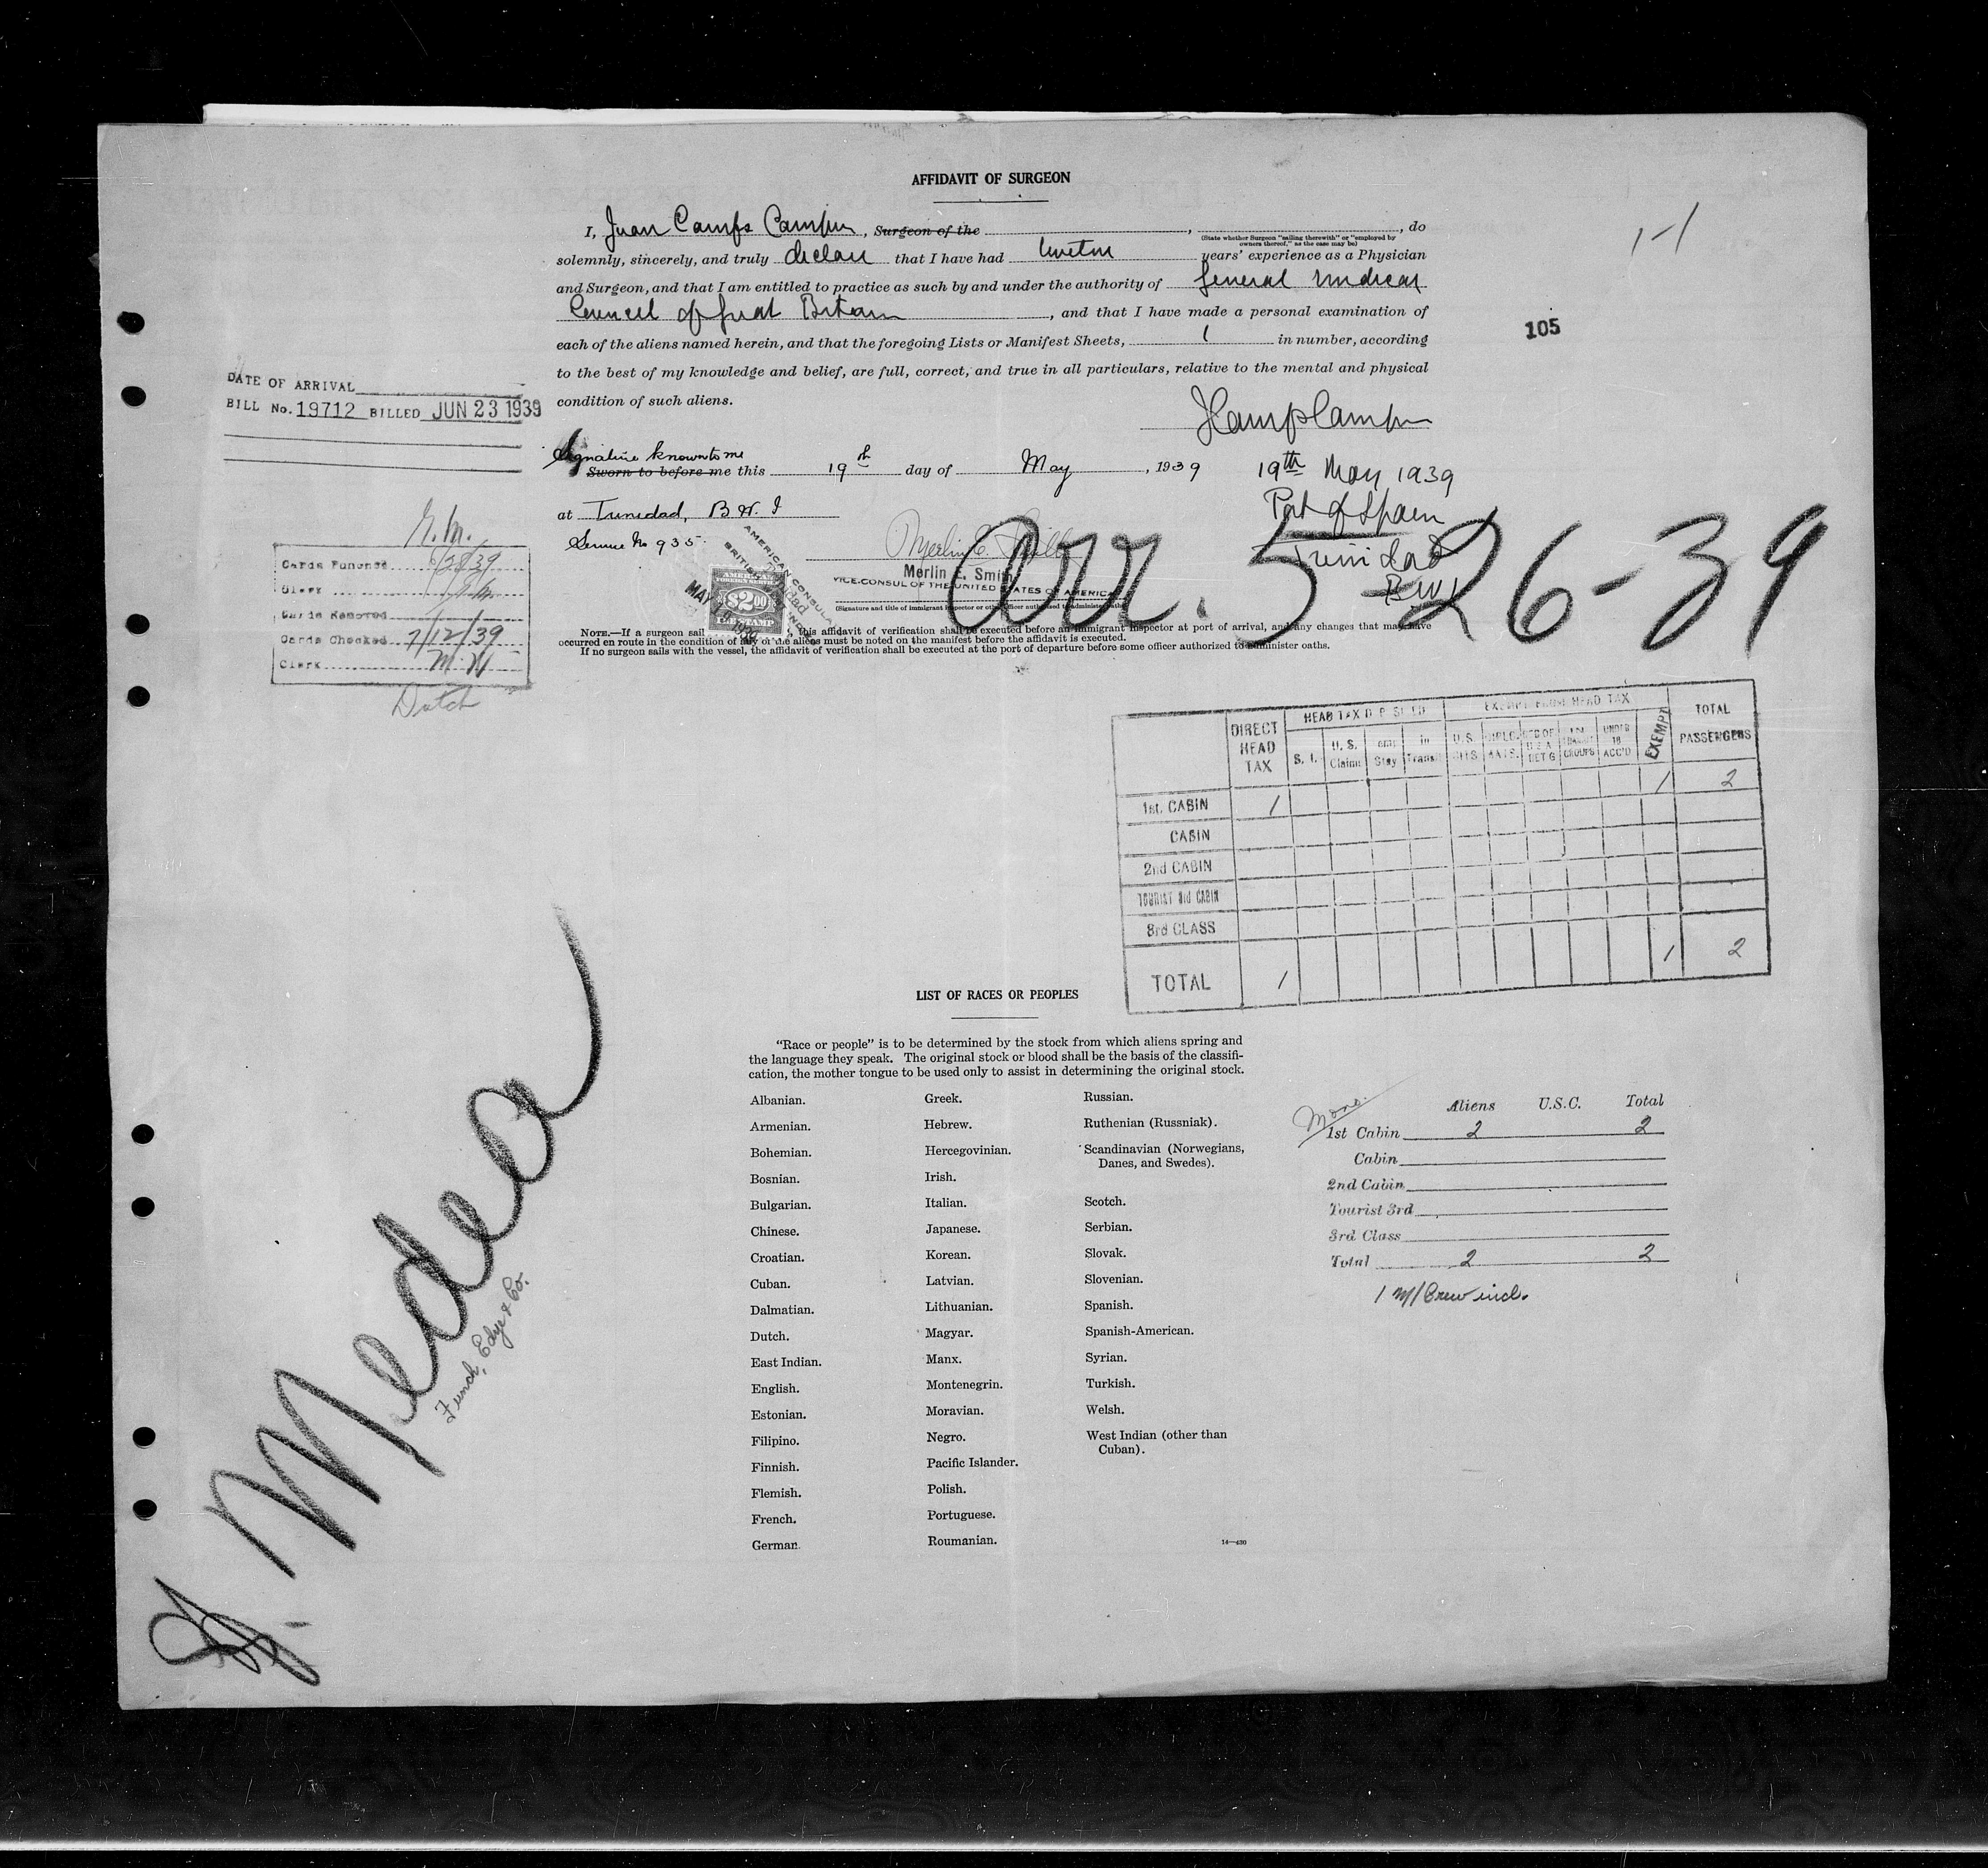 AFFIDAVIT OF SURGEON
I, Juan Camps Campins, Surgeon of the , , do
(State whether Surgeon "sailing therewith" or "employed by
owners thereof," as the case may be)
solemnly, sincerely, and truly declare that I have had years' experience as a Physician
and Surgeon, and that I am entitled to practice as such by and under the authority of General Medical
Council of Great Britain, and that I have made a personal examination of
each of the aliens named herein, and that the foregoing Lists or Manifest Sheets, 1 in number, according
to the best of my knowledge and belief, are full, correct, and true in all particulars, relative to the mental and physical
condition of such aliens.
1-1
105
DATE OF ARRIVAL
BILL No. 19712 BILLED JUN 23 1939
Signature known to me
Sworn to before me this 19th day of May, 1939
at Trinidad, B.W.I
Service No 935
19th May 1939
Port of Spain
Trinidad
B.W.I
Merlin E. Smith
Merlin E. Smith
VICE-CONSUL OF THE UNITED STATES OF AMERICA
(Signature and title of immigrant inspector or other officer authorized to administer oaths)
AMERICAN CONSULATE
AMERICAN
FOREIGN SERVICE
$2.00
FEE STAMP
MAY 19 1939
Arr. 5-26-39
NOTE.—If a surgeon sails , this affidavit of verification shall be executed before an immigrant inspector at port of arrival, and any changes that may have
occurred en route in the condition of any of the aliens must be noted on the manifest before the affidavit is executed.
If no surgeon sails with the vessel, the affidavit of verification shall be executed at the port of departure before some officer authorized to administer oaths.
Cards Punched 6/28/39
Clerk
Cards Removed
Cards Checked 7/12/39
Clerk M.W
Dutch
DIRECT HEAD TAX
EXEMPT FROM HEAD TAX
TOTAL PASSENGERS
S. I.
U. S. Claim
Stay
in Transit
U.S. CITS.
DIPLO-MATS.
UNDER 16 ACC'D
EXEMPT
1 2
1st. CABIN 1
CABIN
2nd CABIN
TOURIST 3rd CABIN
3rd CLASS
TOTAL 1 1 2
LIST OF RACES OR PEOPLES
"Race or people" is to be determined by the stock from which aliens spring and
the language they speak. The original stock or blood shall be the basis of the classifi-
cation, the mother tongue to be used only to assist in determining the original stock.
Albanian.
Armenian.
Bohemian.
Bosnian.
Bulgarian.
Chinese.
Croatian.
Cuban.
Dalmatian.
Dutch.
East Indian.
English.
Estonian.
Filipino.
Finnish.
Flemish.
French.
German.
Greek.
Hebrew.
Hercegovinian.
Irish.
Italian.
Japanese.
Korean.
Latvian.
Lithuanian.
Magyar.
Manx.
Montenegrin.
Moravian.
Negro.
Pacific Islander.
Polish.
Portuguese.
Roumanian.
Russian.
Ruthenian (Russniak).
Scandinavian (Norwegians,
Danes, and Swedes).
Scotch.
Serbian.
Slovak.
Slovenian.
Spanish.
Spanish-American.
Syrian.
Turkish.
Welsh.
West Indian (other than
Cuban).
14—430
Aliens U.S.C. Total
1st Cabin 2 2
Cabin
2nd Cabin
Tourist 3rd
3rd Class
Total 2 2
1 M/Crew incl.
Medea
Funch, Edye & Co.